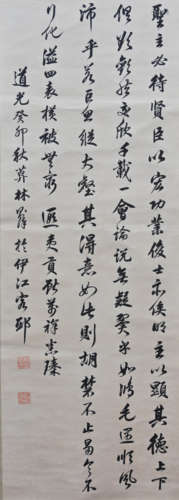 聖主必待賢臣以宏功業俊士亦俟明主以顯其德上下
俱欲歡然交欣千載一會論說無疑翼乎如鴻毛遇順風
沛乎若巨魚縱大壑其得意如此則胡禁不止曷令不
行化溢四表橫被無窮遐夷貢獻萬祥悉臻
道光癸卯秋莫林於伊江寓邸